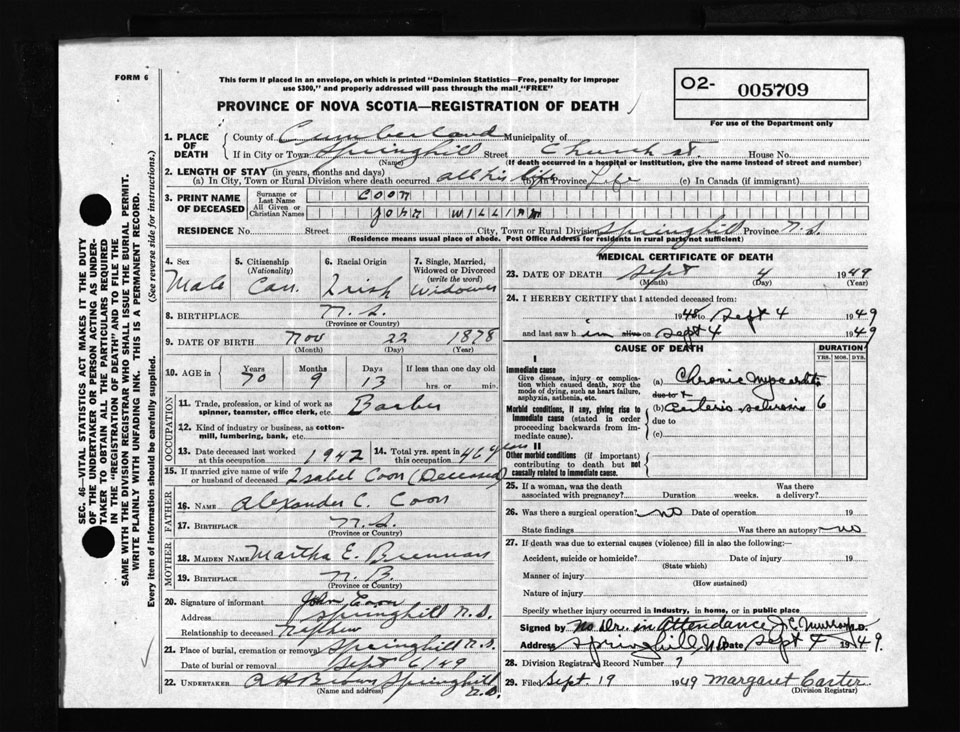 FORM 6
This form if placed in an envelope, on which is printed "Dominion Statistics—Free, penalty for improper
use $300," and properly addressed will pass through the mail "FREE"
PROVINCE OF NOVA SCOTIA—REGISTRATION OF DEATH
O2- 005709
For use of the Department only
1. PLACE OF DEATH
County of Cumberland Municipality of
If in City or Town Springhill Street Church st. House No.
(Name) (If death occurred in a hospital or institution, give the name instead of street and number)
2. LENGTH OF STAY (in years, months and days)
(a) In City, Town or Rural Division where death occurred all his life (b) In Province Life (c) In Canada (if immigrant)
3. PRINT NAME OF DECEASED
Surname or Last Name COON
All Given or Christian Names JOHN WILLIAM
RESIDENCE No. Street City, Town or Rural Division Springhill Province N.S.
(Residence means usual place of abode. Post Office Address for residents in rural parts not sufficient)
4. Sex Male
5. Citizenship (Nationality) Can.
6. Racial Origin Irish
7. Single, Married, Widowed or Divorced (write the word) Widower
8. BIRTHPLACE N.S.
(Province or Country)
9. DATE OF BIRTH Nov 22 1878
(Month) (Day) (Year)
10. AGE in Years 70 Months 9 Days 13 If less than one day old hrs. or min.
OCCUPATION
11. Trade, profession, or kind of work as spinner, teamster, office clerk, etc. Barber
12. Kind of industry or business, as cotton-mill, lumbering, bank, etc.
13. Date deceased last worked at this occupation 1942
14. Total yrs. spent in this occupation 46 years
15. If married give name of wife or husband of deceased Isabel Coon (Deceased)
FATHER
16. NAME Alexander C. Coon
17. BIRTHPLACE N.S.
(Province or Country)
MOTHER
18. MAIDEN NAME Martha E. Brennan
19. BIRTHPLACE N.B.
(Province or Country)
20. Signature of informant John Coon
Address Springhill N.S.
Relationship to deceased Nephew
21. Place of burial, cremation or removal Springhill N.S.
Date of burial or removal Sept 6/49
22. UNDERTAKER Brown Springhill N.S.
(Name and address)
MEDICAL CERTIFICATE OF DEATH
23. DATE OF DEATH Sept 4 1949
(Month) (Day) (Year)
24. I HEREBY CERTIFY that I attended deceased from:
1948 to Sept 4 1949
and last saw h im alive on Sept 4 1949
CAUSE OF DEATH
DURATION
YRS. MOS. DYS.
I
Immediate cause
Give disease, injury or complication which caused death, not the mode of dying, such as heart failure, asphyxia, asthenia, etc.
(a) Chronic Myocarditis
due to
Morbid conditions, if any, giving rise to immediate cause (stated in order proceeding backwards from immediate cause).
(b) Arterio sclerosis 6
due to
(c)
II
Other morbid conditions (if important) contributing to death but not causally related to immediate cause.
25. If a woman, was the death associated with pregnancy? Duration weeks. Was there a delivery?
26. Was there a surgical operation? no Date of operation 19
State findings Was there an autopsy? no
27. If death was due to external causes (violence) fill in also the following:—
Accident, suicide or homicide? Date of injury 19
(State which)
Manner of injury
(How sustained)
Nature of injury
Specify whether injury occurred in industry, in home, or in public place
Signed by No Dr. in Attendance J C Murray M.D.
Address Springhill, N.S. Date Sept 4 1949.
28. Division Registrar's Record Number 7
29. Filed Sept. 19 1949 Margaret Carter
(Division Registrar)
SEC. 46—VITAL STATISTICS ACT MAKES IT THE DUTY
OF THE UNDERTAKER OR PERSON ACTING AS UNDER-
TAKER TO OBTAIN ALL THE PARTICULARS REQUIRED
IN THE "REGISTRATION OF DEATH" AND TO FILE THE
SAME WITH THE DIVISION REGISTRAR WHO SHALL ISSUE THE BURIAL PERMIT.
WRITE PLAINLY WITH UNFADING INK. THIS IS A PERMANENT RECORD.
Every item of information should be carefully supplied. (See reverse side for instructions.)